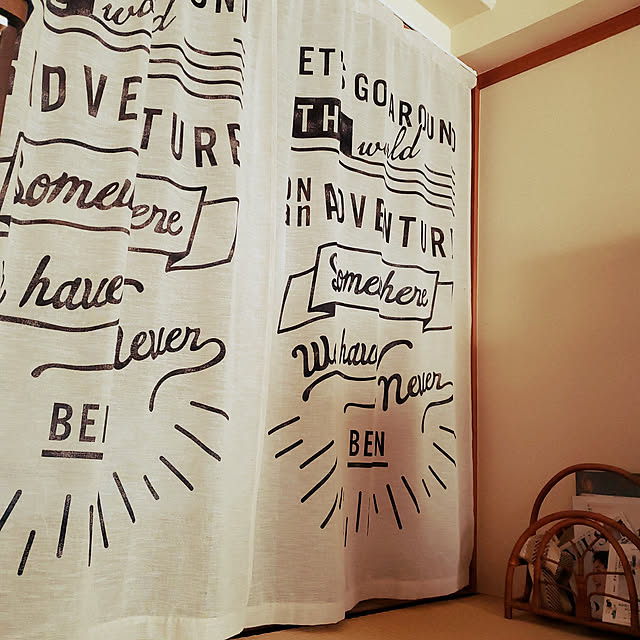 ROUND
world
ADVE
TURE
Somewhere
have
never
BE
ET'S GO AROUND
TH world
ON
an ADVENTUR
Somewhere
We have
Never
BEN